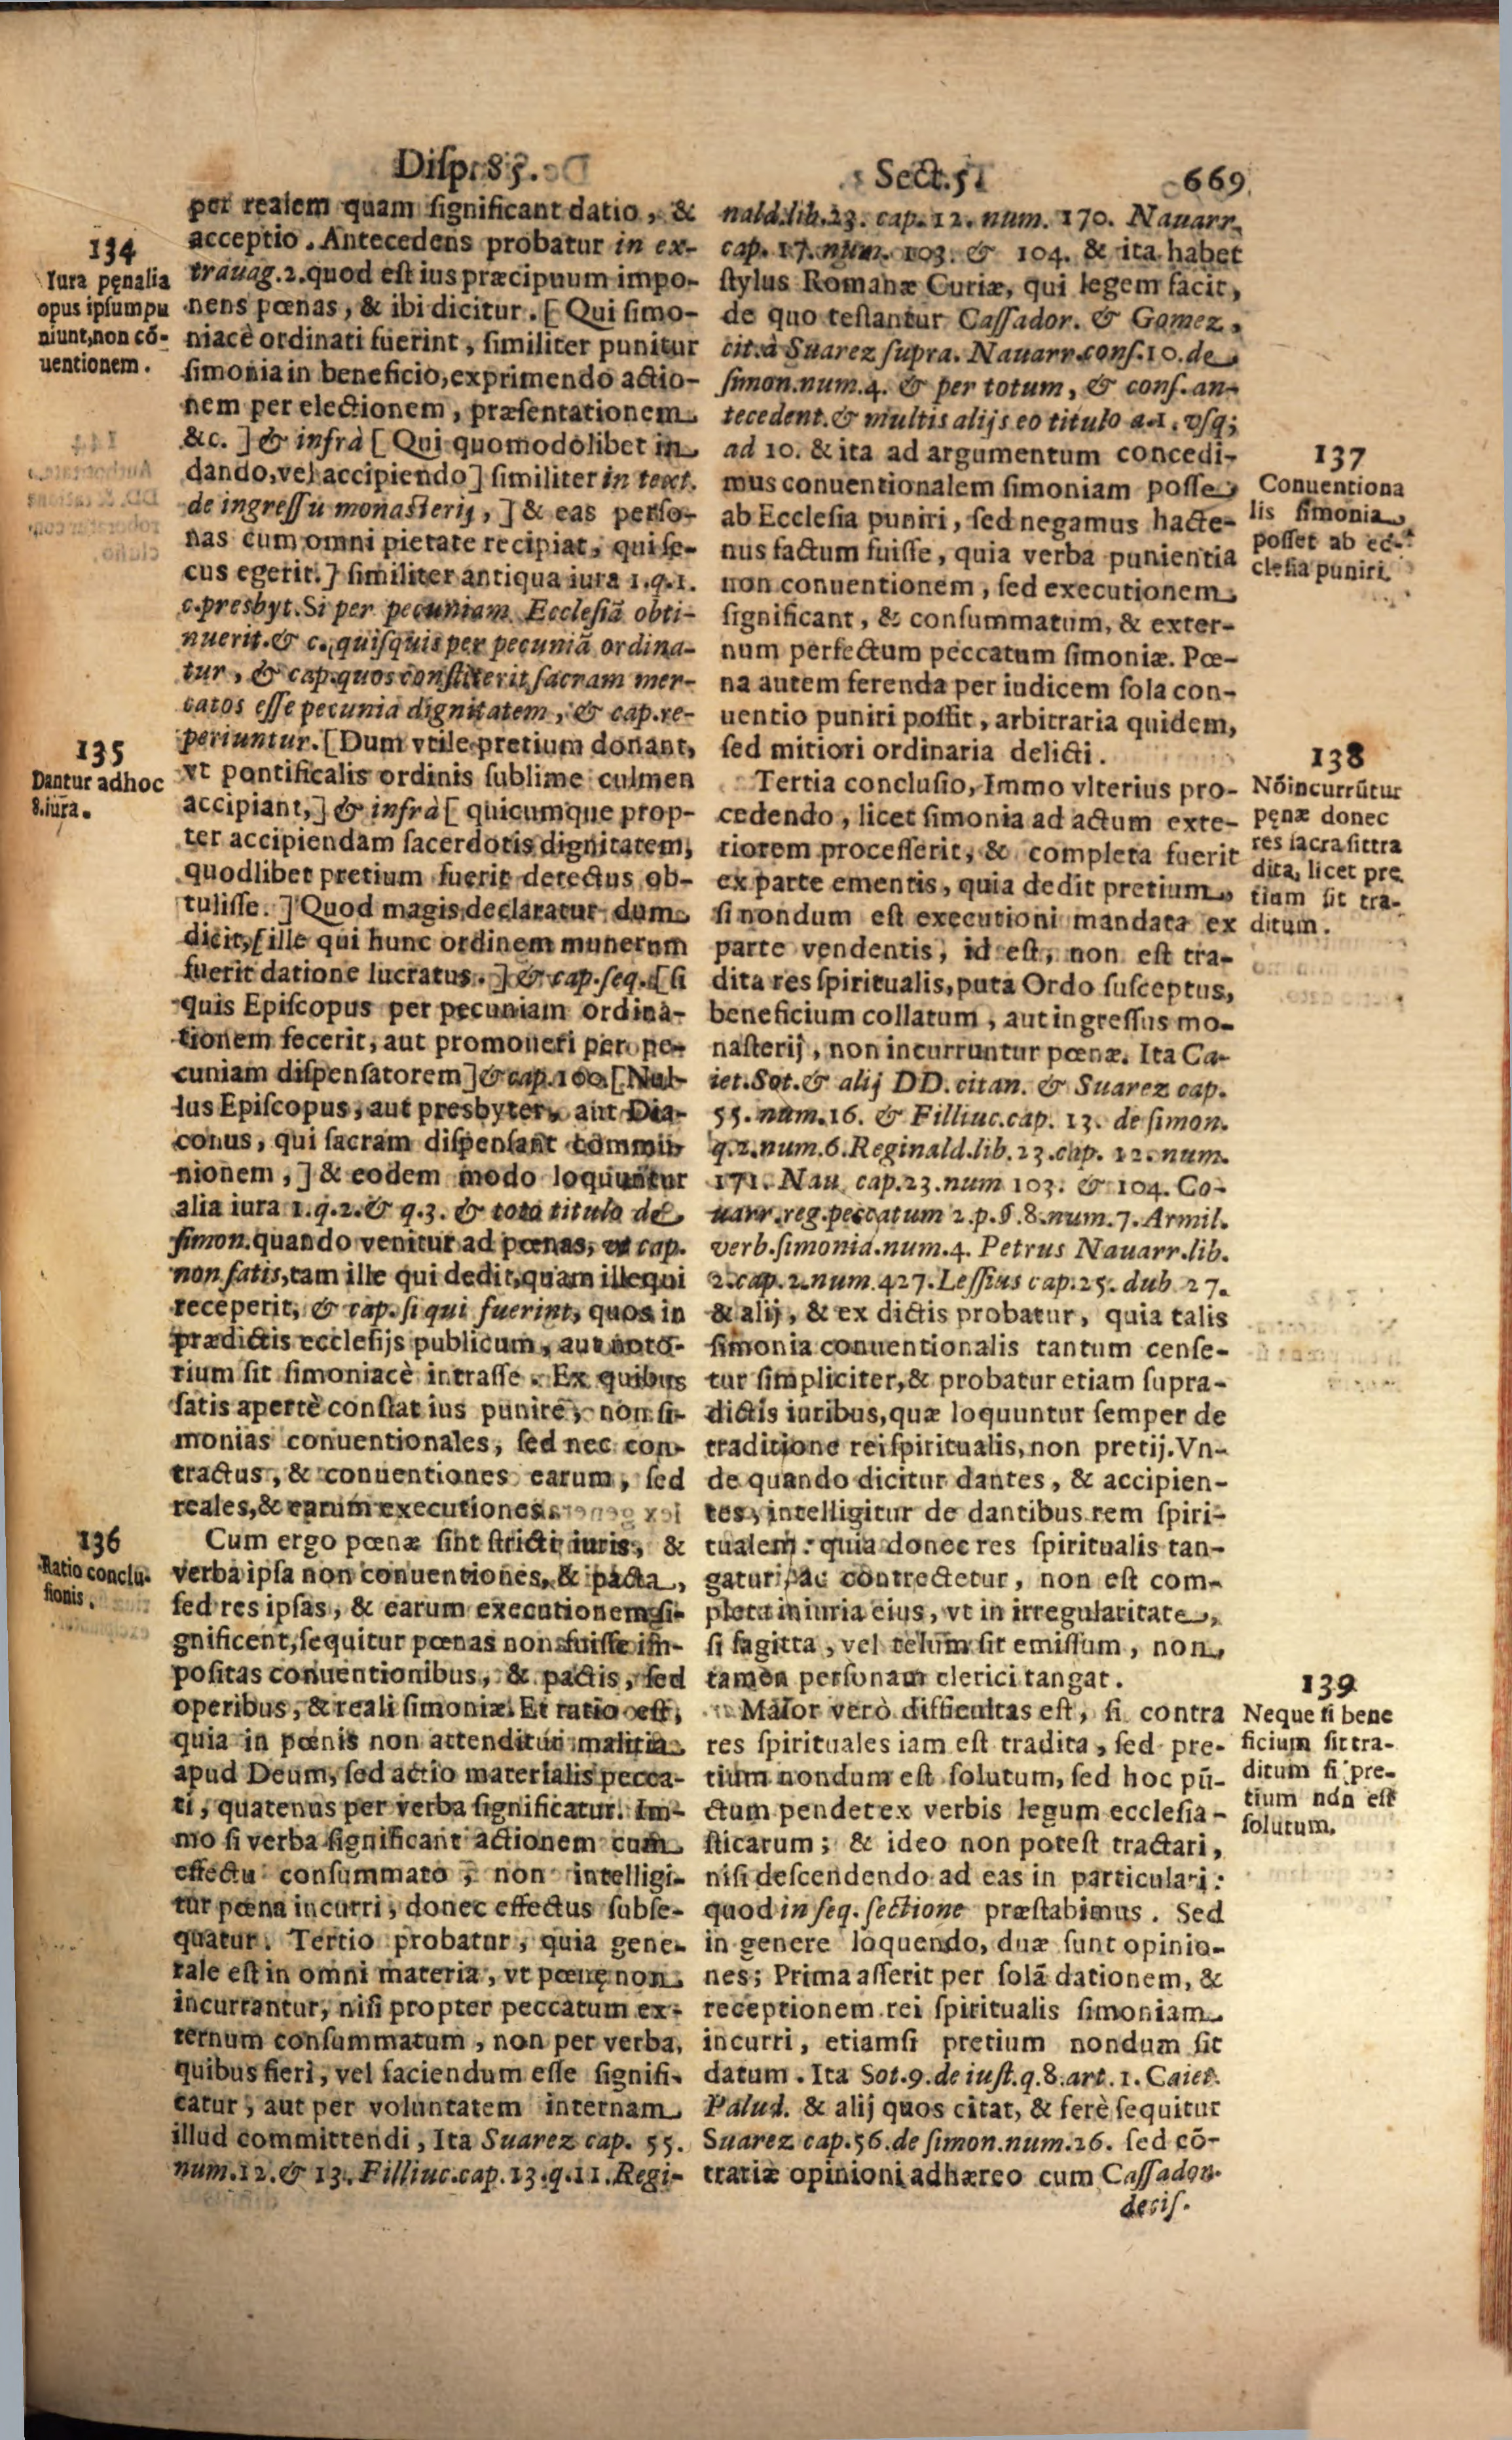 Diſp. 85.
Sect. 5.
669
134
Iura pęnalia
opus ipſumpu
niunt, non cõ-
uentionem.
135
Dantur adhoc
8. iura.
136
Ratio conclu-
ſionis.
per realem quam ſignificant datio, &
acceptio. Antecedens probatur in ex-
trauag. 2. quod eſt ius præcipuum impo-
nens pœnas, & ibi dicitur. [Qui ſimo-
niacè ordinati fuerint, ſimiliter punitur
ſimonia in beneficio, exprimendo actio-
nem per electionem, præſentationem
&c.] & infrà [Qui quomodolibet in
dando, vel accipiendo] ſimiliter in text.
de ingreſſu monaſterij,] & eas perſo-
nas cum omni pietate recipiat, qui ſe-
cus egerit.] ſimiliter antiqua iura 1. q. 1.
c. presbyt. Si per pecuniam Eccleſiã obti-
nuerit. & c. quiſquis per pecuniã ordina-
tur, & cap. quos conſtiterit ſacram mer-
catos eſſe pecunia dignitatem, & cap. re-
periuntur. [Dum vtile pretium donant,
vt pontificalis ordinis ſublime culmen
accipiant,] & infrà [quicumque prop-
ter accipiendam ſacerdotis dignitatem,
quodlibet pretium fuerit detectus ob-
tuliſſe.] Quod magis declaratur dum
dicit, [ille qui hunc ordinem munerum
fuerit datione lucratus.] & cap. ſeq. [ſi
quis Epiſcopus per pecuniam ordina-
tionem fecerit, aut promoueri per pe-
cuniam diſpenſatorem] & cap. 100. [Nul-
lus Epiſcopus, aut presbyter, aut Dia-
conus, qui ſacram diſpenſant commu-
nionem,] & eodem modo loquuntur
alia iura 1. q. 2. & q. 3. & toto titulo de
ſimon. quando venitur ad pœnas, vt cap.
non ſatis, tam ille qui dedit, quam ille qui
receperit, & cap. ſi qui fuerint, quos in
prædictis eccleſijs publicum, aut noto-
rium ſit ſimoniacè intraſſe. Ex quibus
ſatis apertè conſtat ius punire, non ſi-
monias conuentionales, ſed nec con-
tractus, & conuentiones earum, ſed
reales, & earum executiones.
Cum ergo pœnæ ſint ſtricti iuris, &
verba ipſa non conuentiones, & pacta,
ſed res ipſas, & earum executionem ſi-
gnificent, ſequitur pœnas non fuiſſe im-
poſitas conuentionibus, & pactis, ſed
operibus, & reali ſimoniæ. Et ratio eſt,
quia in pœnis non attenditur malitia
apud Deum, ſed actio materialis pecca-
ti, quatenus per verba ſignificatur. Im-
mo ſi verba ſignificant actionem cum
effectu conſummato, non intelligi-
tur pœna incurri, donec effectus ſubſe-
quatur. Tertio probatur, quia gene-
rale eſt in omni materia, vt pœnę non
incurrantur, niſi propter peccatum ex-
ternum conſummatum, non per verba,
quibus fieri, vel faciendum eſſe ſignifi-
catur, aut per voluntatem internam
illud committendi, Ita Suarez cap. 55.
num. 12. & 13. Filliuc. cap. 13. q. 11. Regi-
nald. lib. 23. cap. 12. num. 170. Nauarr.
cap. 17. num. 103. & 104. & ita habet
ſtylus Romanæ Curiæ, qui legem facit,
de quo teſtantur Caſſador. & Gomez,
cit. à Suarez ſupra. Nauarr. conſ. 10. de
ſimon. num. 4. & per totum, & conſ. an-
tecedent. & multis alijs eo titulo a. 1. vſq;
ad 10. & ita ad argumentum concedi-
mus conuentionalem ſimoniam poſſe
ab Eccleſia puniri, ſed negamus hacte-
nus factum fuiſſe, quia verba punientia
non conuentionem, ſed executionem
ſignificant, & conſummatum, & exter-
num perfectum peccatum ſimoniæ. Pœ-
na autem ferenda per iudicem ſola con-
uentio puniri poſſit, arbitraria quidem,
ſed mitiori ordinaria delicti.
Tertia concluſio, Immo vlterius pro-
cedendo, licet ſimonia ad actum exte-
riorem proceſſerit, & completa fuerit
ex parte ementis, quia dedit pretium,
ſi nondum eſt executioni mandata ex
parte vendentis, id eſt, non eſt tra-
dita res ſpiritualis, puta Ordo ſuſceptus,
beneficium collatum, aut ingreſſus mo-
naſterij, non incurruntur pœnæ. Ita Ca-
iet. Sot. & alij DD. citan. & Suarez cap.
55. num. 16. & Filliuc. cap. 13. de ſimon.
q. 2. num. 6. Reginald. lib. 23. cap. 12. num.
171. Nau. cap. 23. num 103. & 104. Co-
uarr. reg. peccatum 2. p. §. 8. num. 7. Armil.
verb. ſimonia. num. 4. Petrus Nauarr. lib.
2. cap. 2. num. 427. Leſſius cap. 25. dub. 27.
& alij, & ex dictis probatur, quia talis
ſimonia conuentionalis tantum cenſe-
tur ſimpliciter, & probatur etiam ſupra-
dictis iuribus, quæ loquuntur ſemper de
traditione rei ſpiritualis, non pretij. Vn-
de quando dicitur dantes, & accipien-
tes, intelligitur de dantibus rem ſpiri-
tualem: quia donec res ſpiritualis tan-
gatur, ac contrectetur, non eſt com-
pleta iniuria eius, vt in irregularitate,
ſi ſagitta, vel telum ſit emiſſum, non
tamen personam clerici tangat.
Maior verò difficultas eſt, ſi contra
res ſpirituales iam eſt tradita, ſed pre-
tium nondum eſt ſolutum, ſed hoc pũ-
ctum pendet ex verbis legum eccleſia-
ſticarum; & ideo non poteſt tractari,
niſi deſcendendo ad eas in particulari:
quod in ſeq. ſectione præſtabimus. Sed
in genere loquendo, duæ ſunt opinio-
nes; Prima aſſerit per ſolã dationem, &
receptionem rei ſpiritualis ſimoniam
incurri, etiamſi pretium nondum ſit
datum. Ita Sot. 9. de iuſt. q. 8. art. 1. Caiet.
Palud. & alij quos citat, & ferè ſequitur
Suarez cap. 56. de ſimon. num. 26. ſed cõ-
trariæ opinioni adhæreo cum Caſſador.
deciſ.
137
Conuentiona
lis ſimonia
poſſet ab ec-
cleſia puniri.
138
Nõ incurrũtur
pęnæ donec
res ſacra ſit tra
dita, licet pre
tium ſit tra-
ditum.
139
Neque ſi bene
ficium ſit tra-
ditum ſi pre-
tium non eſt
ſolutum.